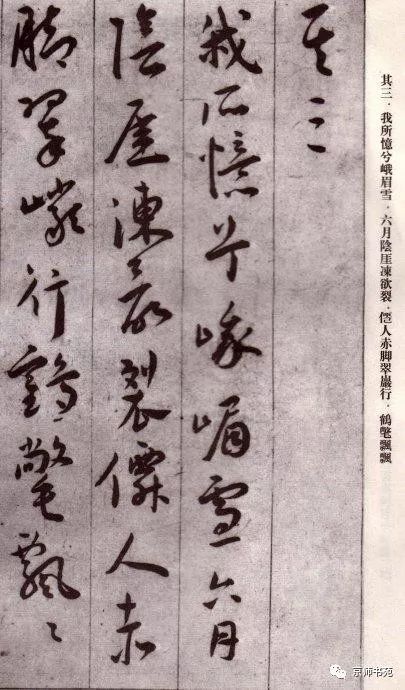 其三．我所憶兮峨眉雪．六月陰厓凍欲裂．僊人赤脚翠巖行．鶴氅飄飄
其三
我所憶兮峨嵋雪六月
陰厓凍欲裂僊人赤
脚翠巖行鶴氅飄〻
京师书苑